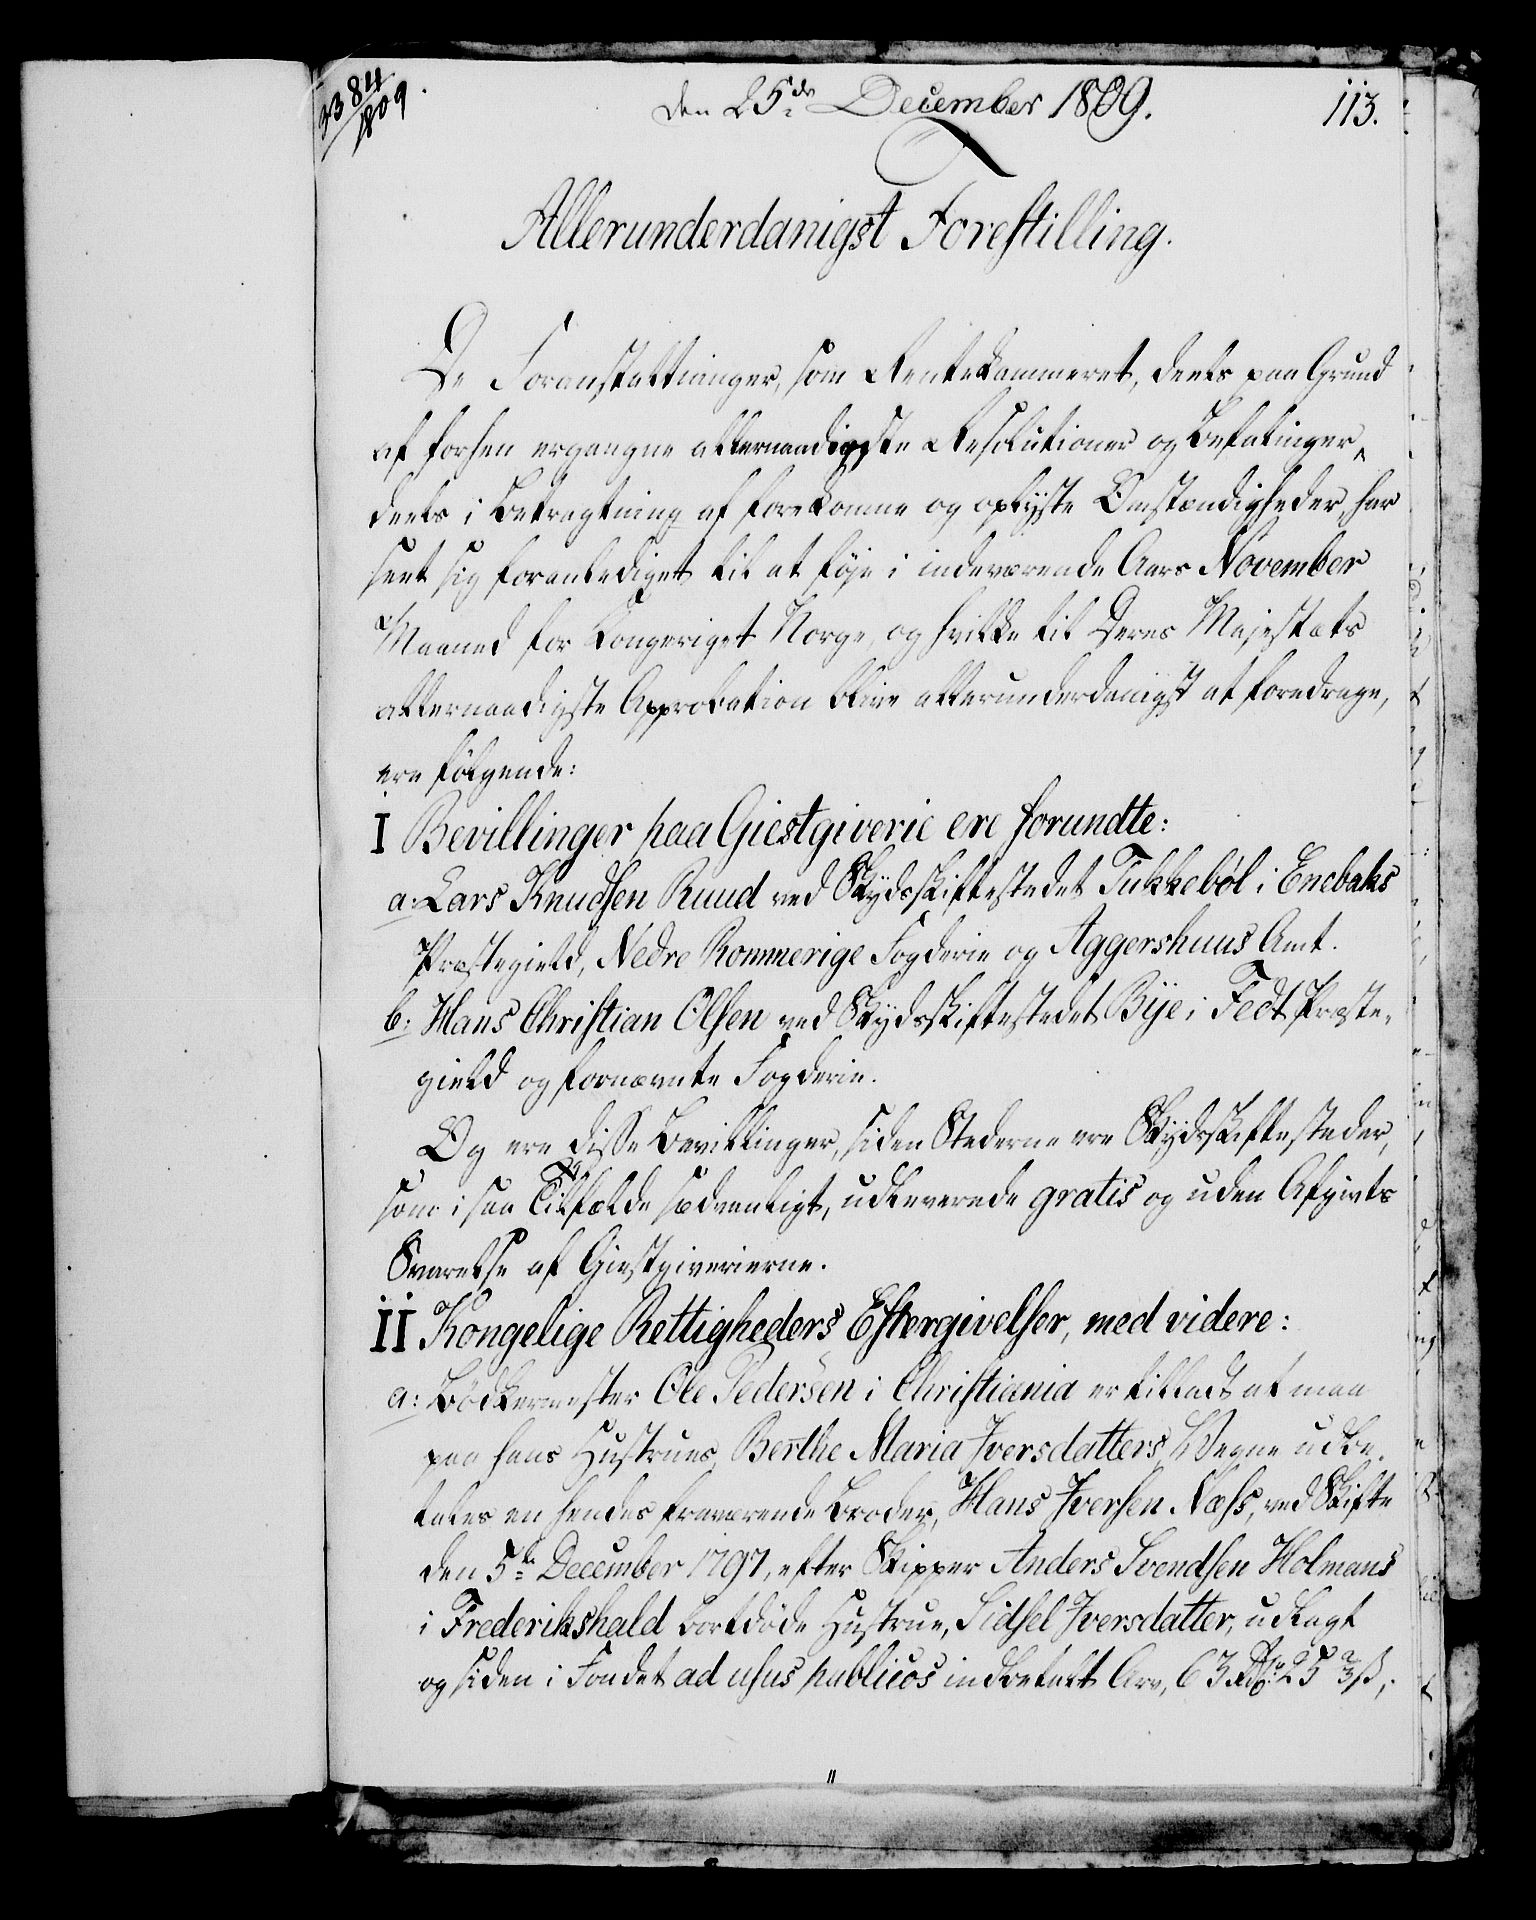 3384
1809.
Den 25de December 1809.
113.
Allerunderdanigst Forestilling.
De Foranstaltninger, som Rentekammeret, deels paa Grund
af forhen ergangne allernaadigste Resolutioner og Befalinger,
deels i Betragtning af forekomne og oplyste Omstændigheder, har
seet sig foranlediget til at føje i indeværende Aars November
Maaned for Kongeriget Norge, og hvilke til Deres Majestæts
allernaadigste Approbation blive allerunderdanigst at foredrage,
ere følgende:
I Bevillinger paa Giestgiverie ere forundte:
a: Lars Knudsen Ruud ved Skydsskiftestedet Tukkebøl i Enebaks
Præstegield, Nedre Rommerige Fogderie og Aggershuus Amt.
b: Hans Christian Olsen ved Skydsskiftestedet Bÿe i Fedt Præste-
gield og fornævnte Fogderie.
Og ere disse Bevillinger, siden Stederne ere Skydsskiftesteder,
som i saa Tilfælde sædvanligt, udleverede gratis og uden Afgivts
Svarelse af Giestgiverierne.
II Kongelige Rettigheders Eftergivelser, med videre:
a: Bødkermester Ole Pedersen i Christiania er tilladt at maa
paa hans Hustrues, Berthe Maria Iversdatters Vegne udbe-
tales en hendes fraværende Broder, Hans Iversen Næss, ved Skifte
den 5te December 1797, efter Skipper Anders Svendsen Holmans
i Frederikshald bortdøde Hustrue, Sidsel Iversdatter, udlagt
og siden i Fondet ad usus publicos indbetalt Arv, 63 Rdlr 25 2/3 ß,